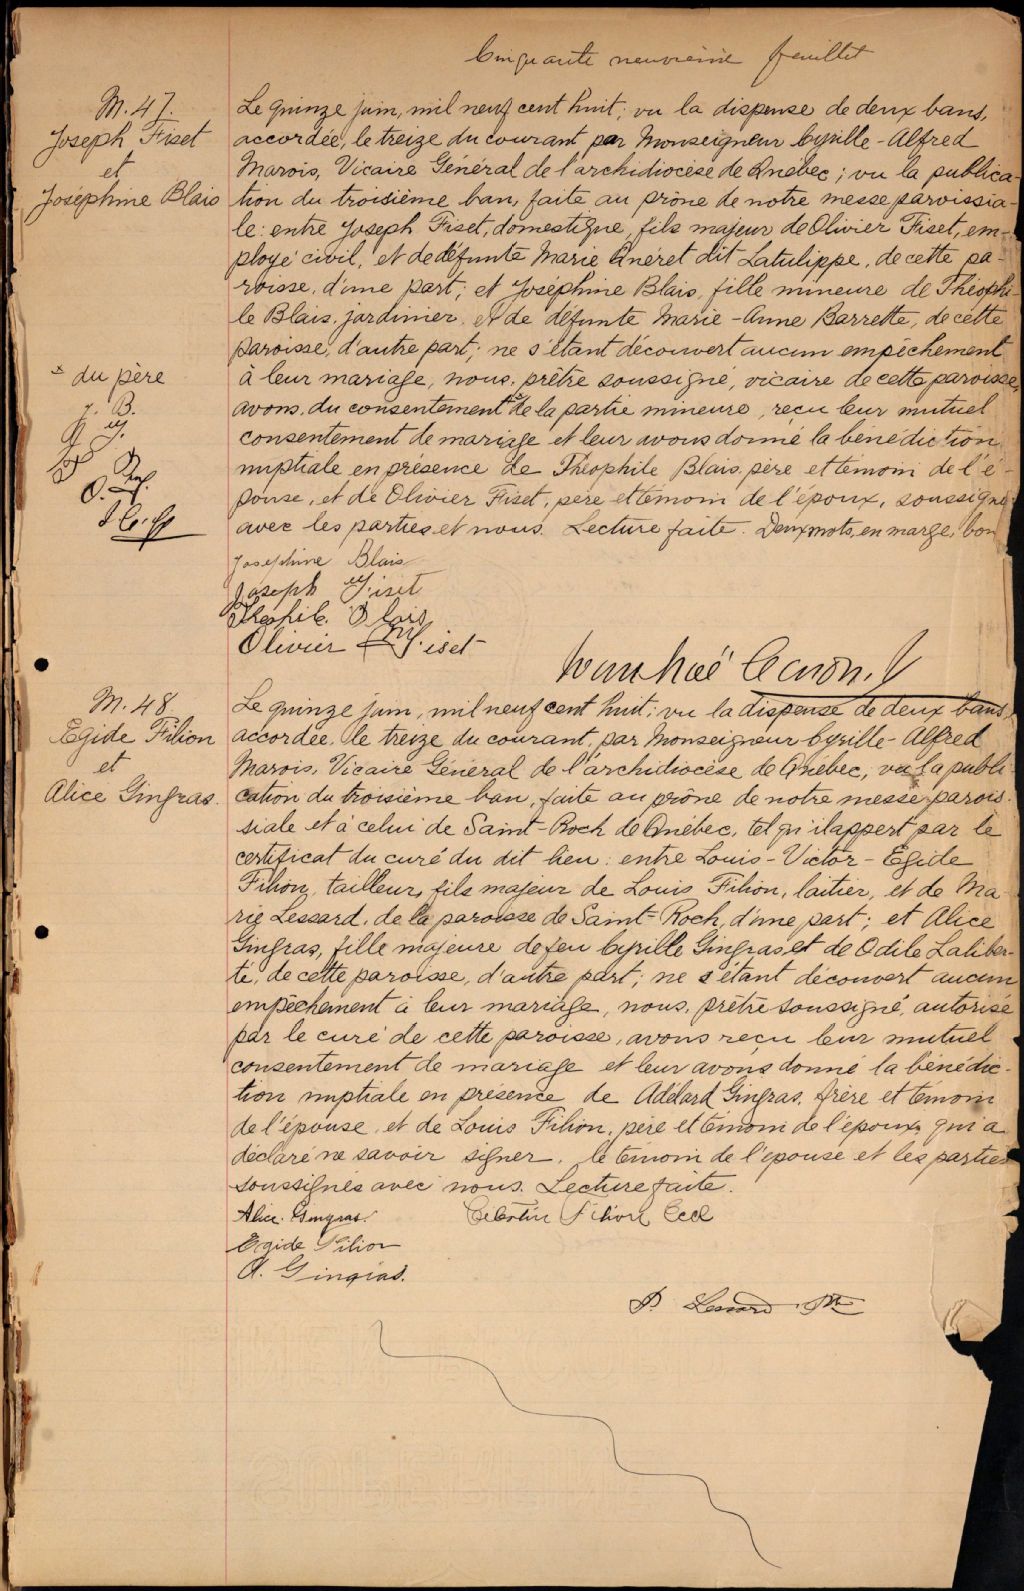 Cinquante neuvième feuillet
M. 47.
Joseph Fiset
et
Joséphine Blais
Le quinze juin, mil neuf cent huit; vu la dispense de deux bans,
accordée, le treize du courant par Monseigneur Cyrille-Alfred
Marois, Vicaire Général de l'archidiocèse de Québec; vu la publica-
tion du troisième ban, faite au prône de notre messe paroissia-
le: entre Joseph Fiset, domestique, fils majeur de Olivier Fiset, em-
ployé civil, et de défunte Marie Quéret dit Latulippe, de cette pa-
roisse, d'une part; et Joséphine Blais, fille mineure de Théophi-
le Blais, jardinier, et de défunte Marie-Anne Barrette, de cette
paroisse, d'autre part; ne s'étant découvert aucun empêchement
à leur mariage, nous, prêtre soussigné, vicaire de cette paroisse,
avons, du consentement x de la partie mineure, reçu leur mutuel
consentement de mariage et leur avons donné la bénédiction
nuptiale en présence de Théophile Blais, père et témoin de l'é-
pouse, et de Olivier Fiset, père et témoin de l'époux, soussignés
avec les parties et nous. Lecture faite. Deux mots, en marge, bon
x du père
J. B.
J. F.
T. B.
O. F.
Joséphine Blais
Joseph Fiset
Théophile Blais
Olivier Fiset
M. 48.
Egide Filion
et
Alice Gingras.
Le quinze juin, mil neuf cent huit; vu la dispense de deux bans,
accordée, le treize du courant, par Monseigneur Cyrille-Alfred
Marois, Vicaire Général de l'archidiocèse de Québec; vu la publi-
cation du troisième ban, faite au prône de notre messe parois-
siale et à celui de Saint-Roch de Québec, tel qu'il appert par le
certificat du curé du dit lieu: entre Louis-Victor-Egide
Filion, tailleur, fils majeur de Louis Filion, laitier, et de Ma-
rie Lessard, de la paroisse de Saint-Roch, d'une part; et Alice
Gingras, fille majeure de feu Cyrille Gingras, et de Odile Laliber-
té, de cette paroisse, d'autre part; ne s'étant découvert aucun
empêchement à leur mariage, nous, prêtre soussigné, autorisé
par le curé de cette paroisse, avons reçu leur mutuel
consentement de mariage et leur avons donné la bénédic-
tion nuptiale en présence de Adélard Gingras, frère et témoin
de l'épouse, et de Louis Filion, père et témoin de l'époux, qui a
déclaré ne savoir signer, le témoin de l'épouse et les parties
soussignés avec nous. Lecture faite.
Alice Gingras. Célestin Filion Eccl
Egide Filion
A. Gingras.
P. Lessard Ptre